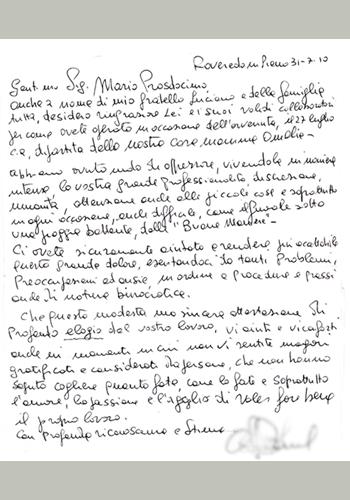 Roveredo in Piano 31-7-10
Gent.mo Sig. Mario Prosdocimo,
anche a nome di mio fratello Luciano e della famiglia
tutta, desidero ringraziare Lei e i suoi validi collaboratori
per come avete operato in occasione dell'avvenuta, il 27 luglio
c.a., dipartita della nostra cara mamma Amalia-
Abbiamo avuto modo di apprezzare, vivendola in maniera
intensa, la vostra grande professionalità, discrezione,
umanità, attenzione anche alle piccole cose e soprattutto
in ogni occasione, anche difficile, come il funerale sotto
una pioggia battente, delle "Buone Maniere"-
Ci avete sicuramente aiutato a rendere più accettabile
questo grande dolore, esentandoci da tanti problemi,
preoccupazioni ed ansie, in ordine a procedure e prassi
anche di natura burocratica.
Che questa modesta ma sincera attestazione di
profondo elogio del vostro lavoro, vi aiuti e vi confort
anche in momenti in cui non vi sentite magari
gratificati e considerati da persone, che non hanno
saputo cogliere quanto fate, come lo fate e soprattutto
l'amore, la passione e l'orgoglio di voler fare bene
il proprio lavoro.
Con profonda riconoscenza e stima